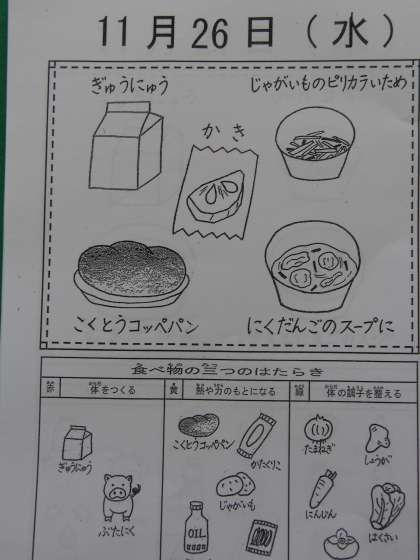 11月26日(水)
ぎゅうにゅう
じゃがいものピリカラいため
かき
こくとうコッペパン
にくだんごのスープに
食べ物の三つのはたらき
赤 体をつくる 黄 熱や力のもとになる 緑 体の調子を整える
ぎゅうにゅう
ぶたにく
こくとうコッペパン
かたくりこ
じゃがいも
OIL
たまねぎ
しょうが
にんじん
はくさい